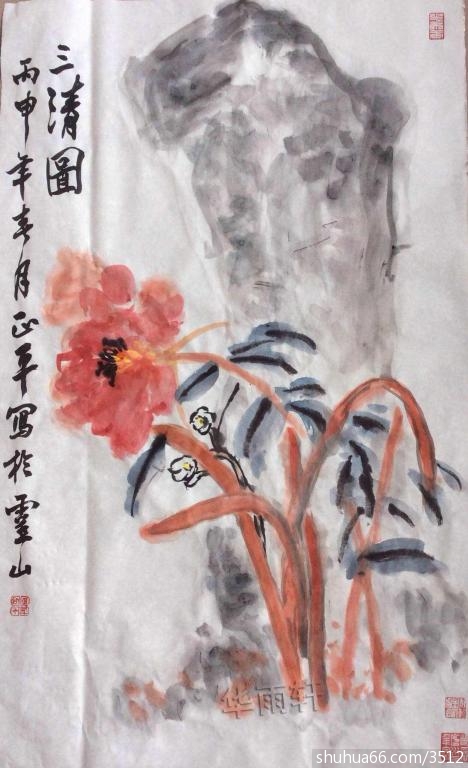 三清圖
丙申年春月正平寫於靈山
华雨轩
shuhua66.com/3512